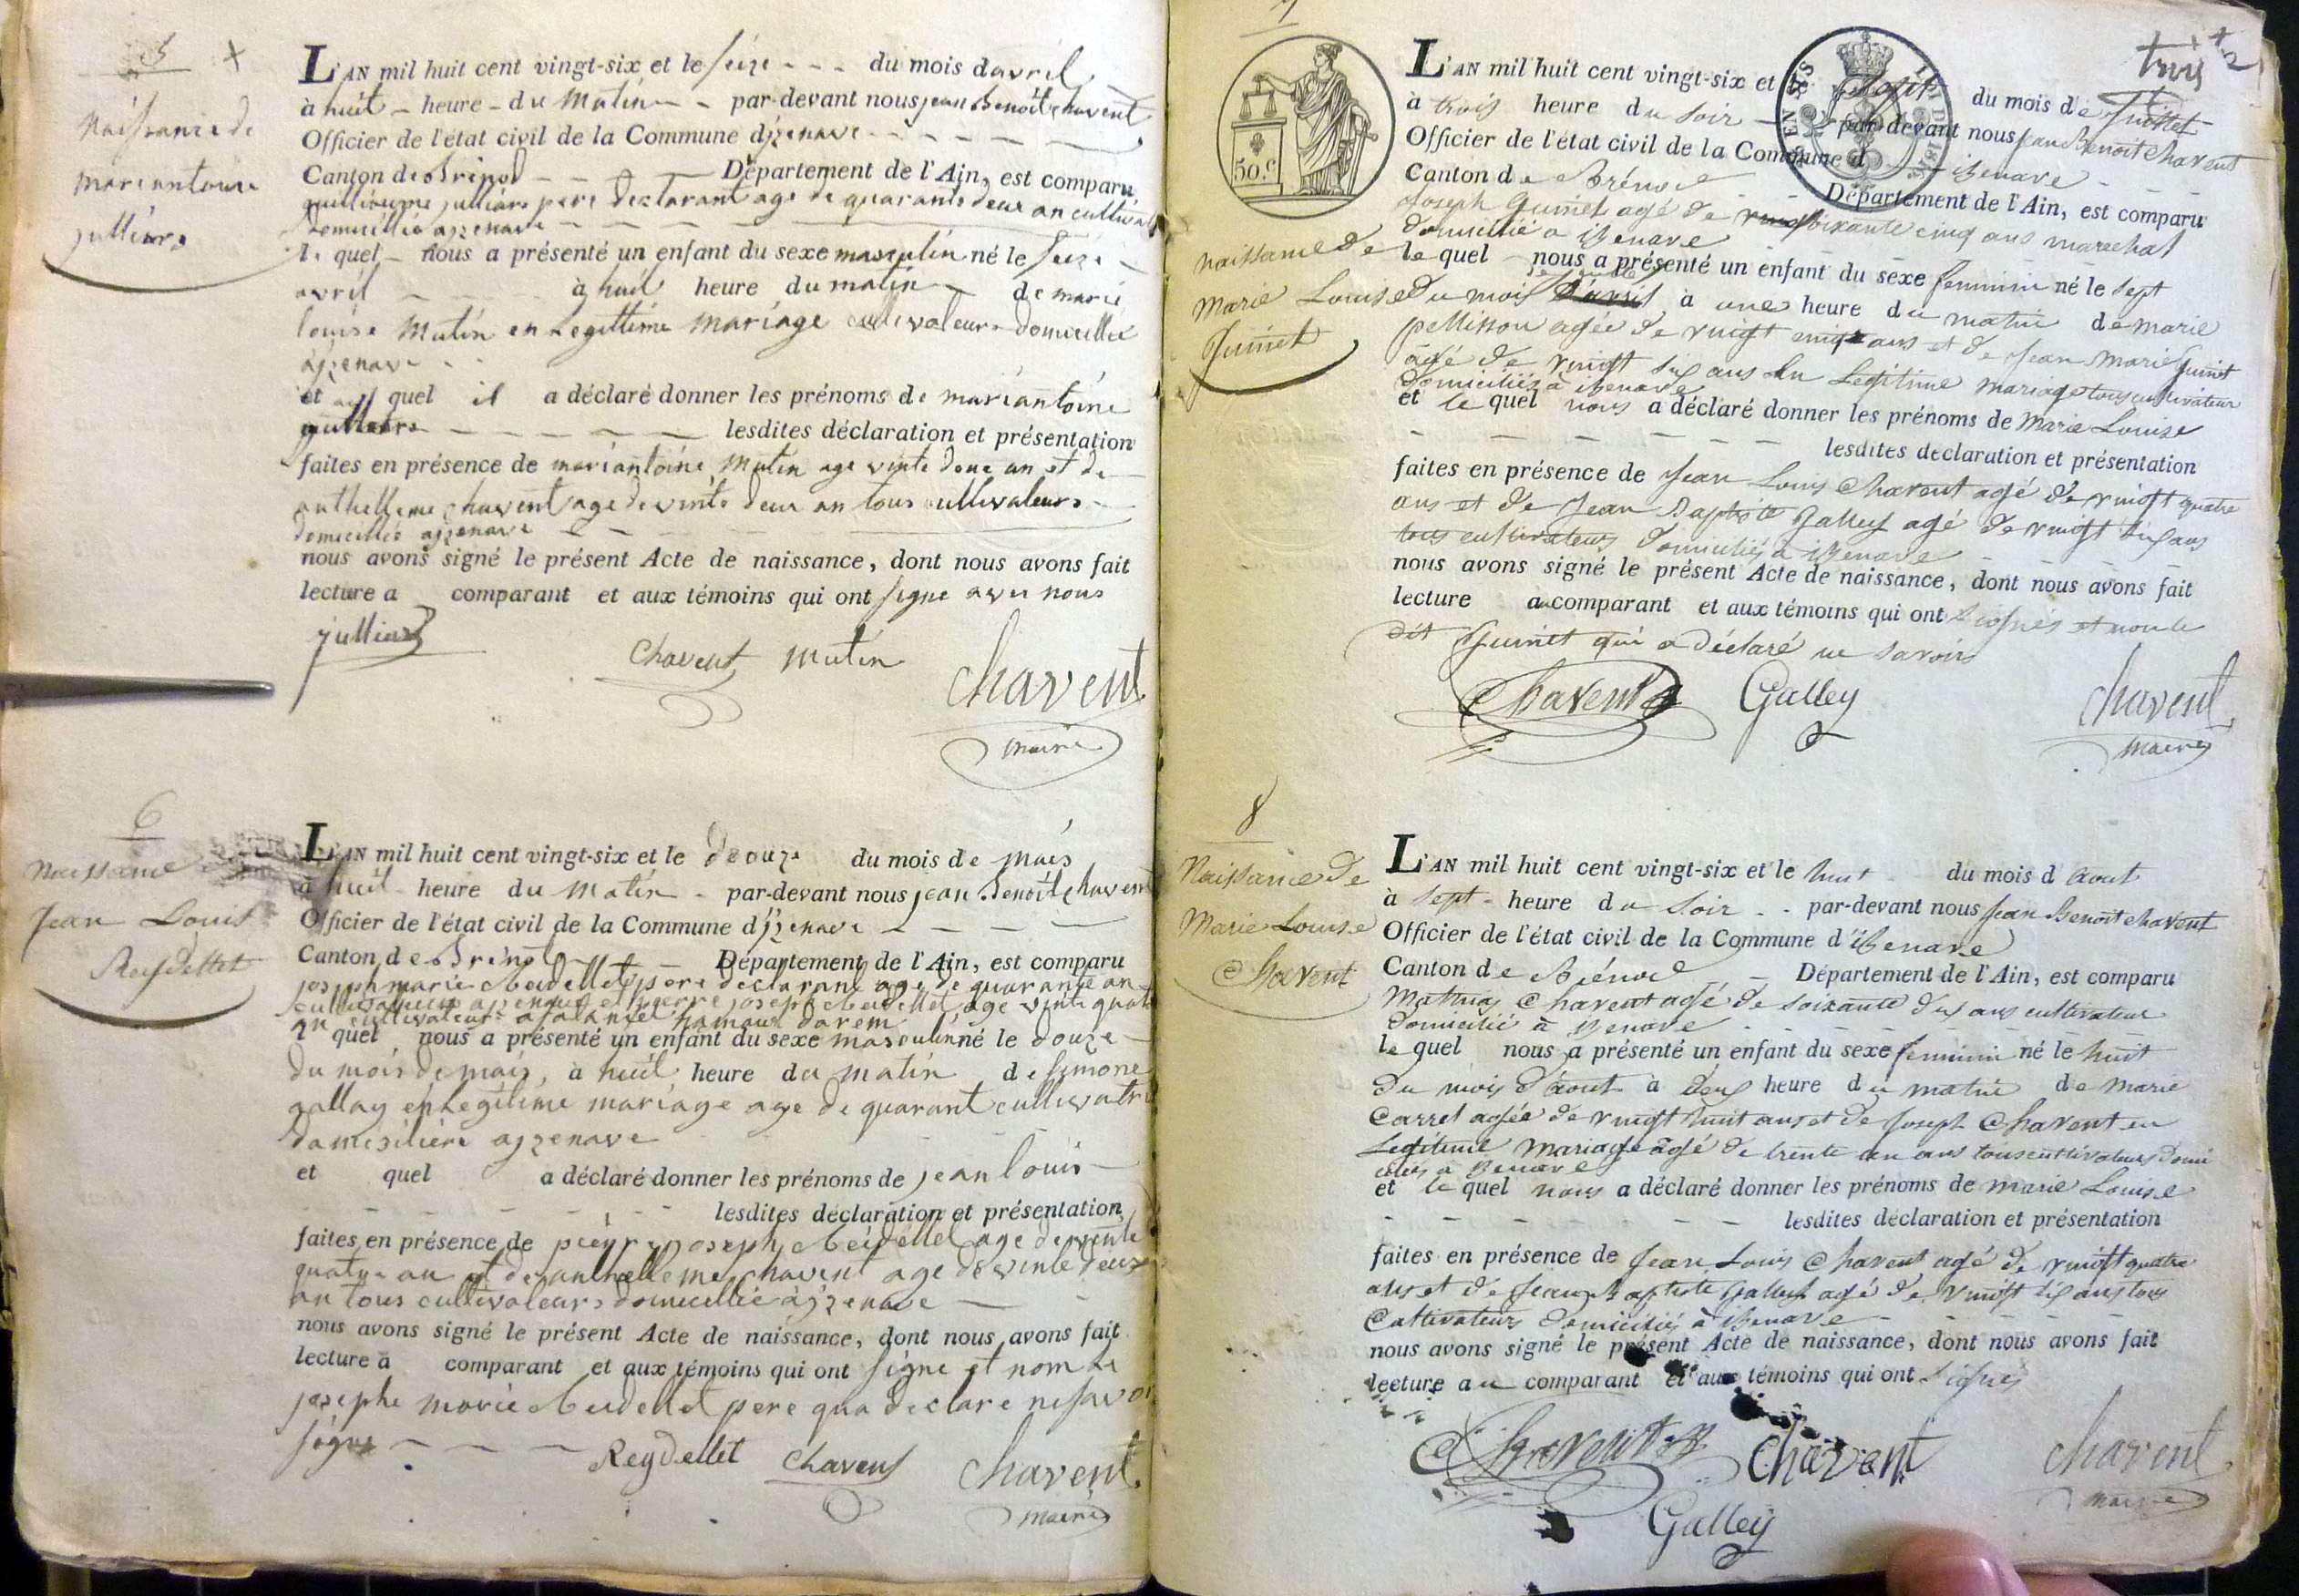 5 +
Naissance de
mariantoine
jullierd
L'AN mil huit cent vingt-six et le seize du mois d avril
à huit heure du Matin par-devant nous jean Benoit chavent
Officier de l'état civil de la Commune d'izenave
Canton de Brénod Département de l'Ain, est comparu
père declarant age de quarante deux an cultivat
domicillié a izenave
le quel nous a présenté un enfant du sexe masculin né le seize
avril à huit heure du matin de marie
louise Mutin en Legittime mariage cultivateurs domicillié
a izenave
et quel il a déclaré donner les prénoms de mariantoine
lesdites déclaration et présentation
faites en présence de mariantoine Mutin age vinte deux an et de
anthelleme chavent age de vinte deux an tous cultivateurs
domicillié a izenave
nous avons signé le présent Acte de naissance, dont nous avons fait
lecture a comparant et aux témoins qui ont signe avec nous
Chavent mutin chavent
maire
6
Naissance
Jean Louis
Reydellet
L'AN mil huit cent vingt-six et le douze du mois de mais
à huit heure du Matin par-devant nous jean Benoit chavent
Officier de l'état civil de la Commune d'izenave
Canton de Brénod Département de l'Ain, est comparu
joseph marie père declarant age de quarante an
cultivateur a izenave et pierre joseph age vinte quatr
an cultivateur
quel nous a présenté un enfant du sexe masculin né le douze
du mois de mais à huit heure du matin de simone
gallay en Legitime mariage age de quarant cultivatri
domisiliere a izenave
et quel a déclaré donner les prénoms de jean louis
lesdites déclaration et présentation
faites en présence de pierre joseph age de vinte
quatre an et de anthelleme chavent age de vinte deux
an tous cultivateurs domicillié a izenave
nous avons signé le présent Acte de naissance, dont nous avons fait
lecture a comparant et aux témoins qui ont signe et nom le
josephe marie pere qua declare ne savoi
signe Reydellet chavent chavent
maire
7
50.c
Naissance de
Marie Louise
Guinet
L'AN mil huit cent vingt-six et le Sept du mois de Juillet
à trois heure du soir par-devant nous Jean Benoit Chavent
Officier de l'état civil de la Commune d izenave
Canton de Brénod Département de l'Ain, est comparu
Joseph Guinet agé de soixante cinq ans marechal
domicilié a izenave
le quel nous a présenté un enfant du sexe feminin né le sept
du mois de juillet à une heure du matin de marie
pellisson agée de vingt cinq ans et de Jean Marie Guinet
agé de vingt six ans en Legitime mariage tous cultivateur
domiciliés à izenave
et le quel nous a déclaré donner les prénoms de Marie Louise
lesdites declaration et présentation
faites en présence de Jean Louis Chavent agé de vingt quatre
ans et de Jean Baptiste Galley agé de vingt six ans
tous cultivateurs domiciliés a izenave
nous avons signé le présent Acte de naissance, dont nous avons fait
lecture au comparant et aux témoins qui ont signés et non le
dit Guinet qui a déclaré ne savoir
Chavent Galley chavent
maire
8
Naissance de
Marie Louise
Chavent
L'AN mil huit cent vingt-six et le huit du mois d Aout
à sept heure du soir par-devant nous Jean Benoit Chavent
Officier de l'état civil de la Commune d'izenave
Canton de Brénod Département de l'Ain, est comparu
Mathias Chavent agé de soixante dix ans cultivateur
domicilié à izenave
le quel nous a présenté un enfant du sexe feminin né le huit
du mois d'aout à deux heure du matin de Marie
Carrel agée de vingt huit ans et de Joseph Chavent en
Legitime Mariage agé de trente un ans tous cultivateurs domi
ciliés a izenave
et le quel nous a déclaré donner les prénoms de Marie Louise
lesdites déclaration et présentation
faites en présence de Jean Louis Chavent agé de vingt quatre
ans et de Jean Baptiste Galley agé de vingt six ans tous
Cultivateurs domiciliés à izenave
nous avons signé le présent Acte de naissance, dont nous avons fait
lecture au comparant et aux témoins qui ont signés
Chavent chavent chavent
maire
Galley